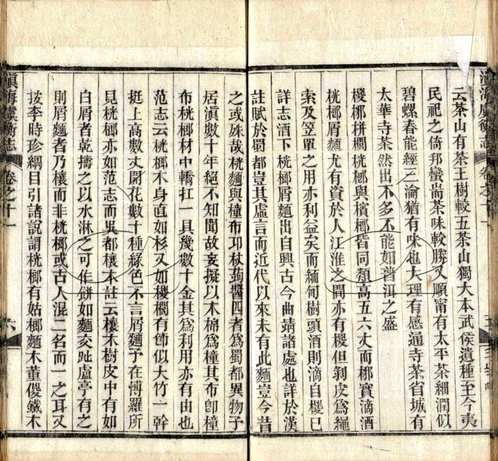 滇海虞衡志 卷之十一
云茶山有茶王樹較五茶山獨大本武侯遺種至今夷
民祀之倚邦蠻耑茶味較勝又順甯有太平茶細潤似
碧螺春能經三瀹猶有味也大理有感通寺茶省城有
太華寺茶然出不多不能如普洱之盛
椰桄榔檳榔與椶櫚舊同類高五六丈而椰實滴酒
桄榔屑麵尤有資於人江淮之間亦有椶但剝皮爲繩
索及笠罩之用亦利益矣而緬甸樹頭酒則滴自椶巳
詳志酒下桄榔屑麵出自興古今曲靖諸處也詳於漢
註賦於蜀都豈其虛言而近代以來未有此麵豈今昔
之或殊哉桄麵與橦布卭杖蒟醬四者爲蜀都異物予
居滇數十年絕不知聞故妄擬以木棉爲橦其布卽橦
布桄榔材中轎扛一具幾數十金其爲利用亦有由也
范志云桄榔木身直如杉又如椶櫚有節似大竹一幹
挺上高數丈開花數十穗綠色不言屑麵予在博羅所
見桄榔亦如范志而異都欀木註云欀木樹皮中有如
白屑者乾擣之以水淋之可作餅如麵交趾盧亭有之
則屑麵者乃欀而非桄榔或古人混二名而一之耳又
按李時珍綱目引諸說謂桄榔有姑榔麵木董㯶鐵木
滇海虞衡志 卷之十一 六